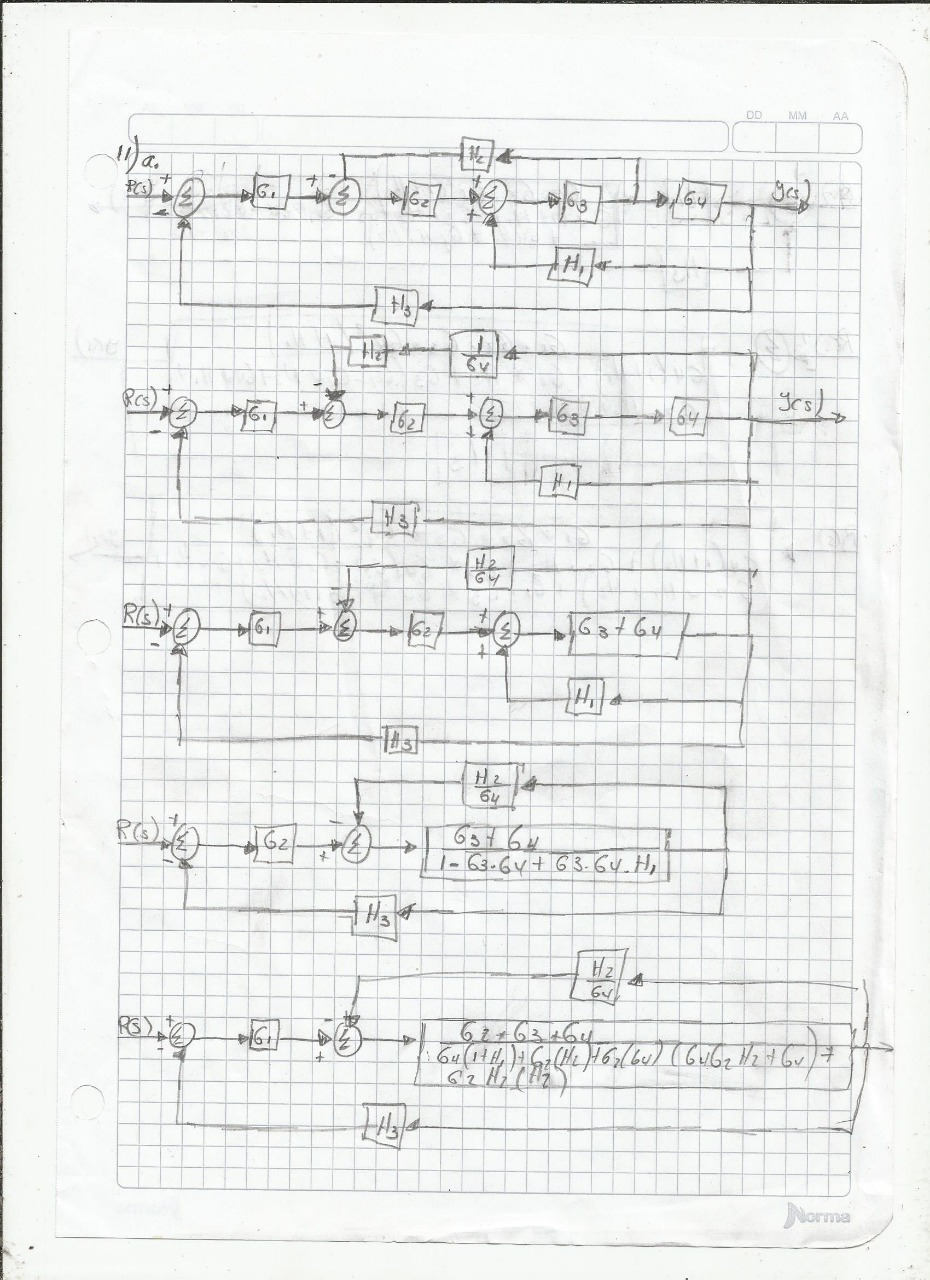 DD MM AA
11) a.
H2
R(s) + - Σ G1 + - Σ G2 + + Σ G3 G4 y(s)
H1
H3
H2 1/G4
R(s) + - Σ G1 + - Σ G2 + + Σ G3 G4 y(s)
H1
H3
H2/G4
R(s) + - Σ G1 + - Σ G2 + + Σ G3 + G4
H1
H3
H2/G4
R(s) + - Σ G2 + - Σ
G3 + G4
1 - G3·G4 + G3·G4·H1
H3
H2/G4
R(s) + - Σ G1 + - Σ
G2 + G3 + G4
G4(1+H1)+G2(H2)+G2(G4) (G4G2H2+G4)+
G2 H2 (H2)
H3
Norma